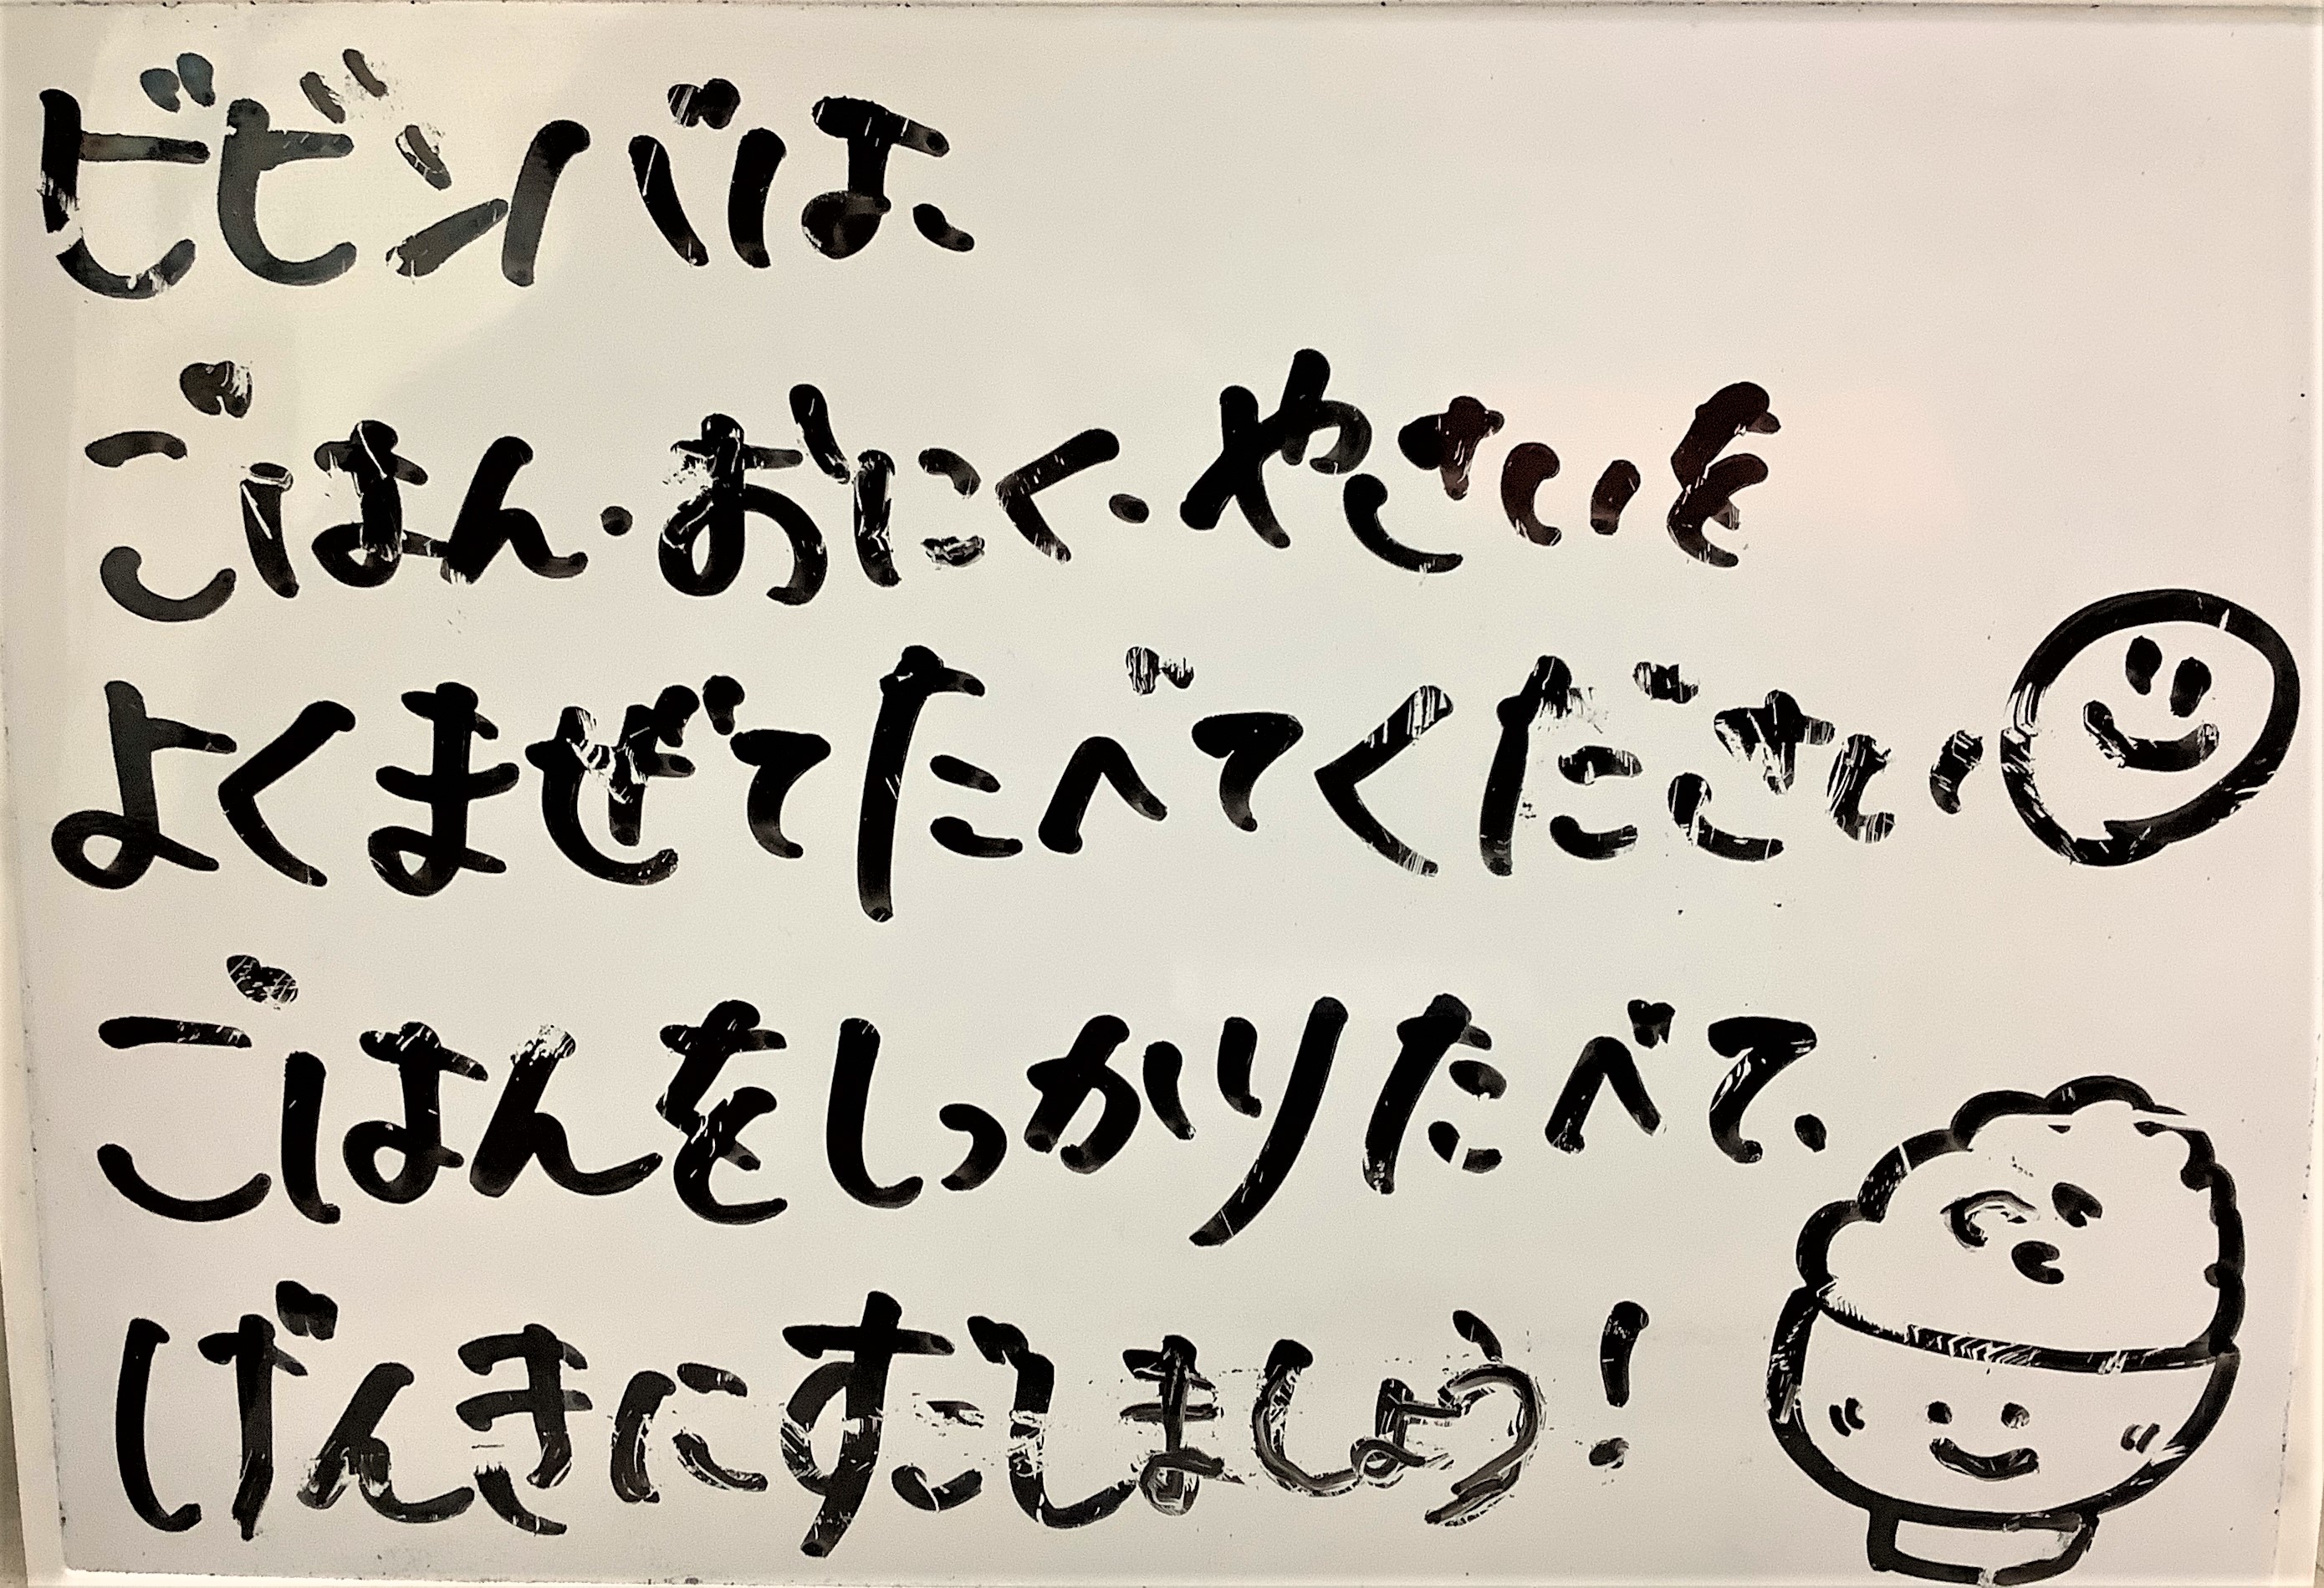 ビビンバは、
ごはん・おにく・やさいを
よくまぜてたべてください
ごはんをしっかりたべて、
げんきにすごしましょう!